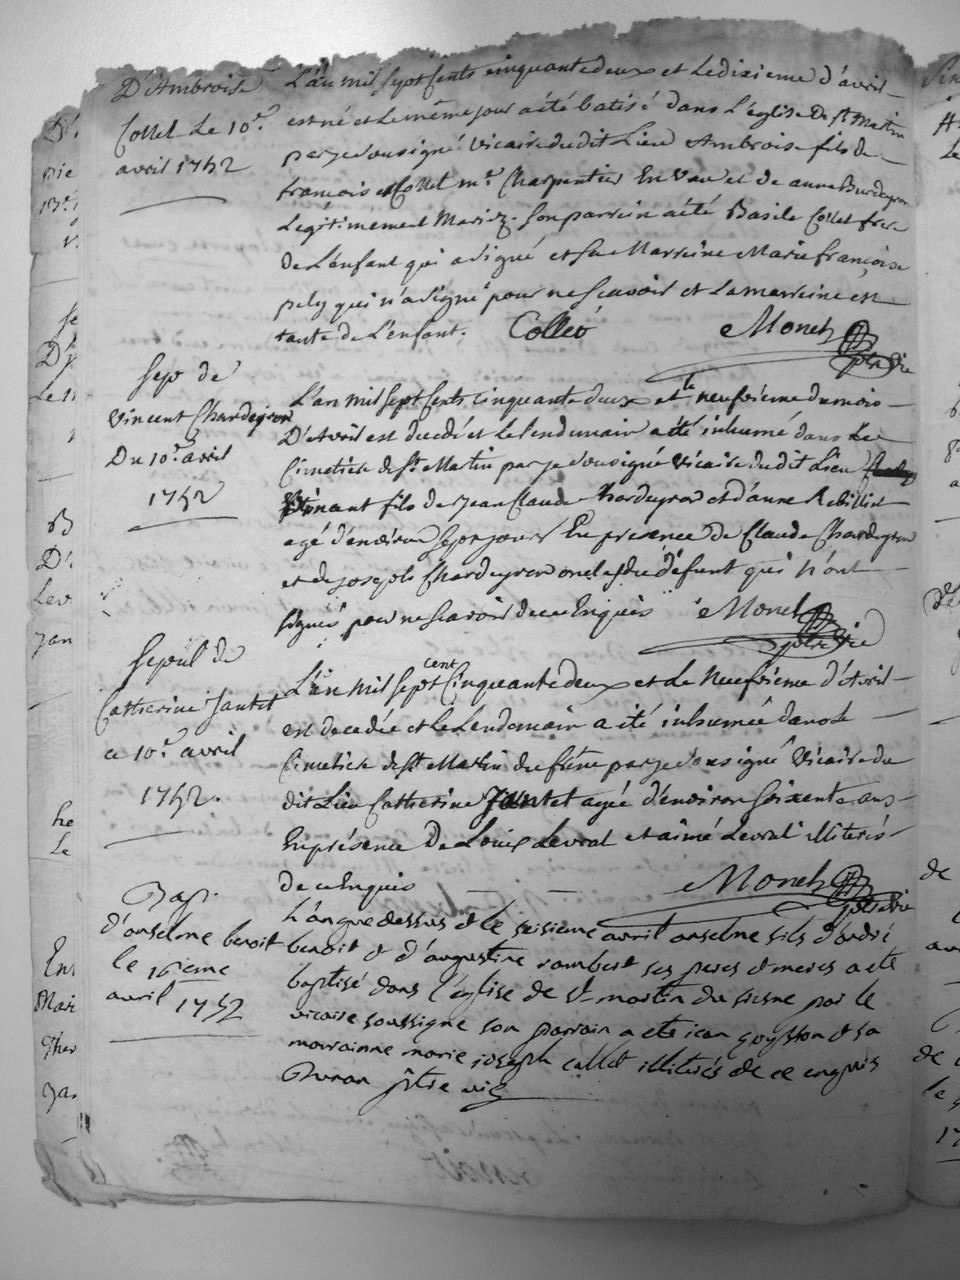 D'Ambroise
Collet Le 10.e
avril 1752
L'an mil sept cents cinquante deux et Le dixieme d'avril
est né et Le même jour a été batisé dans L'église De St Martin
par je sousigné Vicaire du dit Lieu Ambroise fils de
francois Collet m.e Charpentier En Vau et de anne
Légitimement Mariez. Son parrein a été Basile Collet frere
de L'enfant qui a signé et sa Marreine Marie françoise
pely qui n'a signé pour ne scavoir et La marreine est
tante de L'enfant. Colleò Monet
ptre Vic
Sep.r de
Vincent Chardeyron
Du 10.e avril
1752
L'an Mil Sept Cents Cinquante deux et le neufvieme du mois
D'Avril est decedé et Le Lendemain a été inhumé dans Le
Cimetiere de St Martin par je sousigné Vicaire du dit Lieu
Vincent fils de Jean Claude Chardeyron et d'anne
agé d'environ sept jours En presence De Claude Chardeyron
et de joseph Chardeyron oncles du défunt qui n'ont
signé pour ne scavoir de ce Enquis Monet
ptre Vic
Sepul de
Catherine Jantet
ce 10.e avril
1752.
L'an Mil Sept cent Cinquante deux et Le Neufvieme d'Avril
est decedée et Le Lendemain a été inhumée dans Le
Cimetiere de St Martin du frêne par je sousigné Vicaire du
dit Lieu Catherine Jantet agée d'environ soixente ans
En présence De Louis Levrat et aimé Levrat illiterés
De ce Enquis Monet
ptre Vic
Bap.
d'anselme benoit
le 16eme
avril 1752
L'an que dessus et le seisieme avril anselme fils d'andré
benoit et d'augustine rambert ses peres et meres a eté
baptisé dans l'église de St martin du fresne par le
vicaire soussigne son parrain a ete jean et sa
marrainne marie joseph collet illiterés de ce enquis
ptre vic